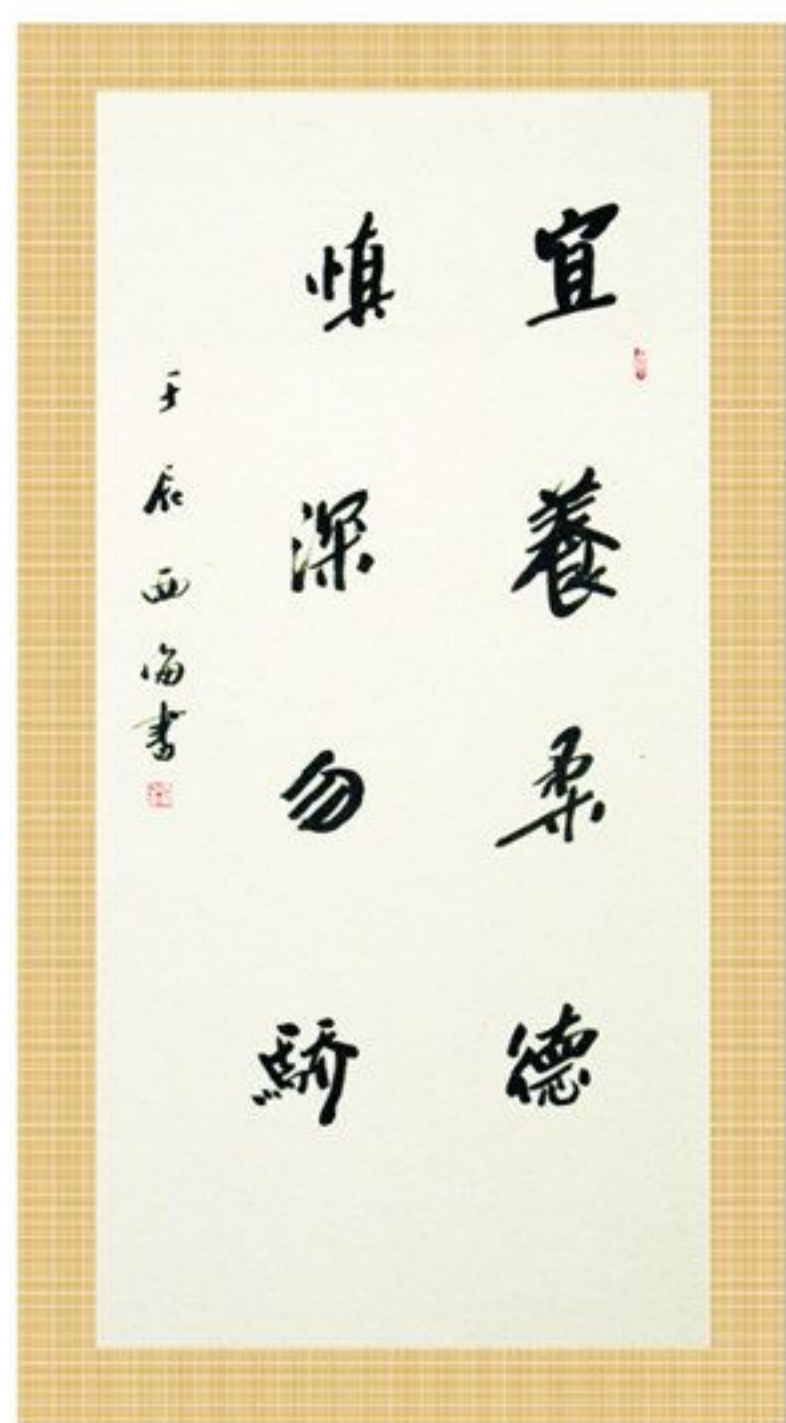 宜養柔德
慎深勿驕
壬辰西海書